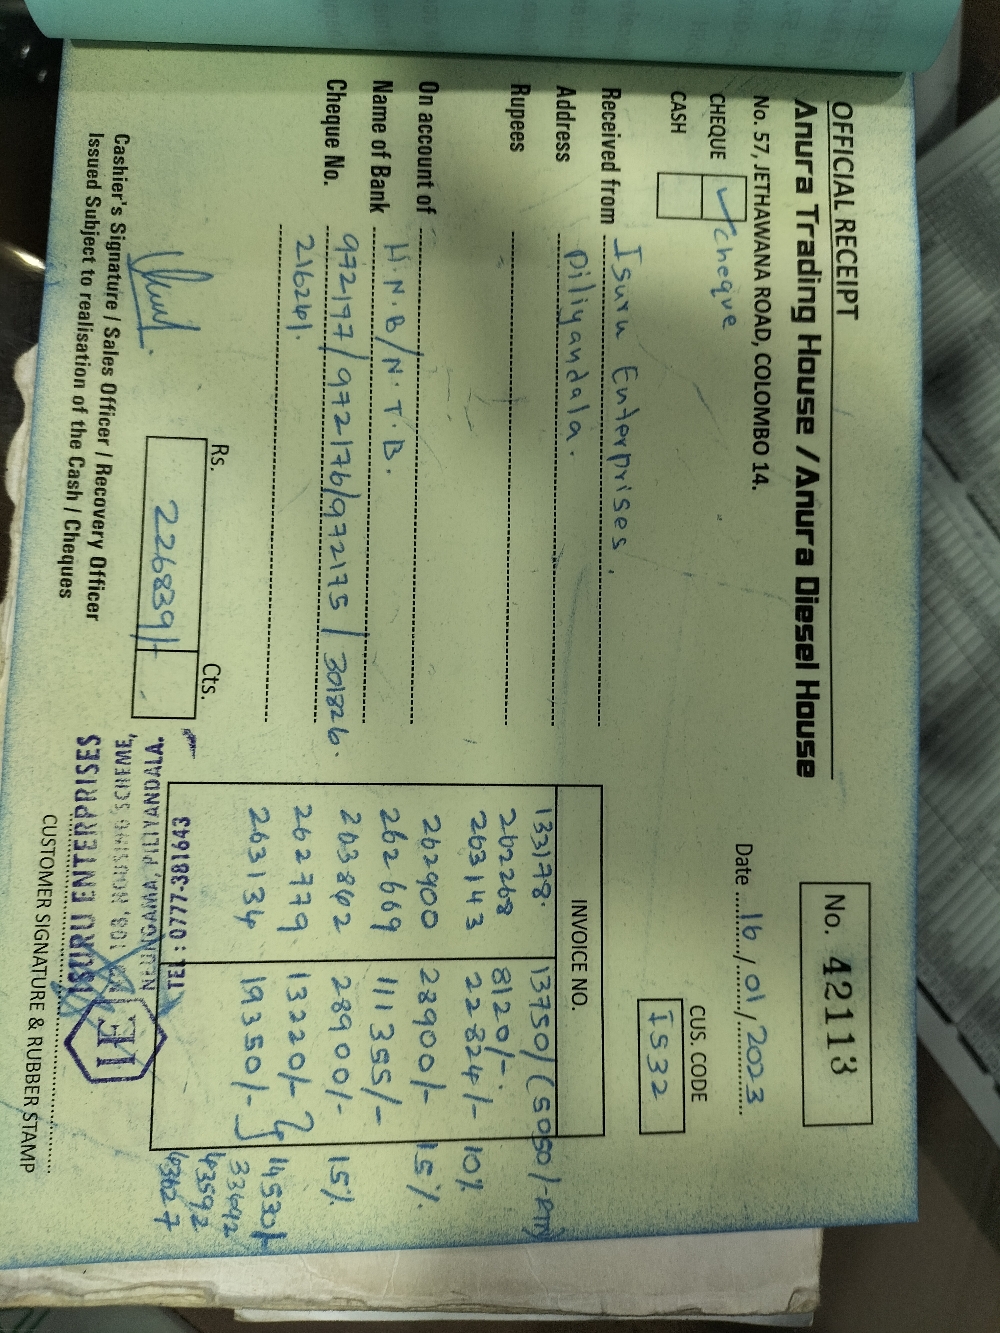 OFFICIAL RECEIPT
Anura Trading House / Anura Diesel House
No. 57, JETHAWANA ROAD, COLOMBO 14.
No. 42113
Date 16/01/2023
CHEQUE ✓ cheque
CASH
CUS. CODE
IS32
Received from Isuru Enterprises.
Address Piliyandala.
Rupees
On account of
Name of Bank H.N.B/N.T.B.
Cheque No. 972197/972176/972175/301826.
216241.
INVOICE NO.
133178. 13750/(5050/-RTN
262268 8120/-.
263143 22824/- 10%
262900 28900/- 15%.
262669 111355/-
263862 28900/- 15%.
262779 13220/-
263134 19350/- 14530/-
33692
43592
43627
Rs. Cts.
226839/- -
Cashier's Signature / Sales Officer / Recovery Officer
Issued Subject to realisation of the Cash / Cheques
ISURU ENTERPRISES
108, HOUSING SCHEME,
PILIYANDALA.
TEL : 0777-381643
IE
CUSTOMER SIGNATURE & RUBBER STAMP